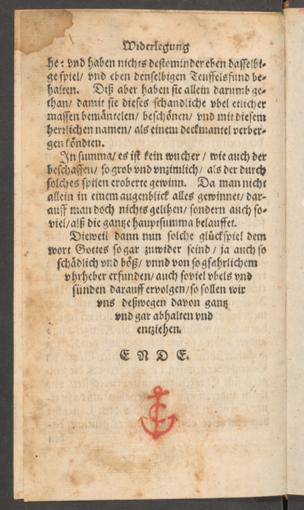 Widerlegung
he: vnd haben nichts destominder eben dasselbi-
ge spiel/ vnd eben denselbigen Teuffelsfund be-
halten. Diß aber haben sie allein darumb ge-
than/ damit sie dieses schandliche vbel etlicher
massen bemäntelen/ beschönen/ vnd mit diesem
herrlichen namen/ als einem deckmantel verber-
gen köndten.
In summa/ es ist kein wucher/ wie auch der
beschaffen/ so grob vnd vnzimlich/ als der durch
solches spilen eroberte gewinn. Da man nicht
allein in einem augenblick alles gewinnet/ dar-
auff man doch nichts gelihen/ sondern auch so-
viel/ alß die gantze hauptsumma belauffet.
Dieweil dann nun solche glückspiel dem
wort Gottes so gar zuwider seind/ ja auch so
schädlich vnd böß/ vnnd von so gfahrlichem
vhrheber erfunden/ auch soviel vbels vnd
sünden darauff ervolgen/ so sollen wir
vns deßwegen davon gantz
vnd gar abhalten vnd
entziehen.
E N D E.